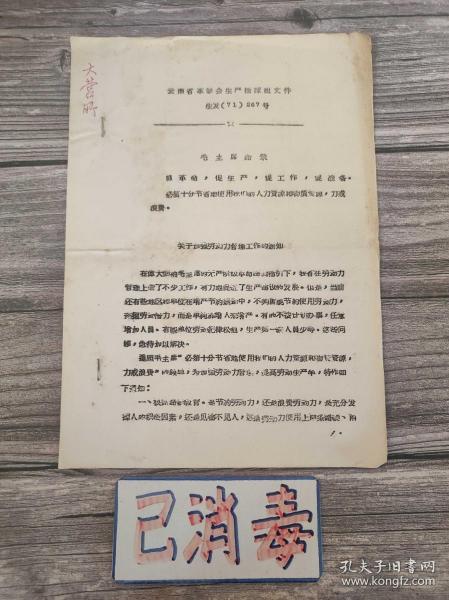 大营所
云南省革委会生产指挥组文件
生发(71)267号
毛主席语录
抓革命,促生产,促工作,促战备。
必须十分节省地使用我们的人力资源和物质资源,力戒
浪费。
关于加强劳动力管理工作的通知
在伟大领袖毛主席的无产阶级革命路线指引下,我省在劳动力
管理上做了不少工作,有力地促进了生产建设的发展。但是,当前
还有些地区和单位在增产节约运动中,不狠抓节约使用劳动力,
挖掘劳动潜力,而是单纯靠增人来增产。有的不按计划办事,任意
增加人员。有的单位劳动纪律松弛,生产第一线人员少等。这些问
题,急待加以解决。
遵照毛主席“必须十分节省地使用我们的人力资源和物质资源,
力戒浪费”的教导,为加强劳动力管理,提高劳动生产率,特作如
下通知:
一、积极 节约劳动力,还是浪费劳动力,是充分发
挥人的积极因素,还是见物不见人,这是劳动力使用上两条路线、两
1.
已消毒
孔夫子旧书网
www.kongfz.com